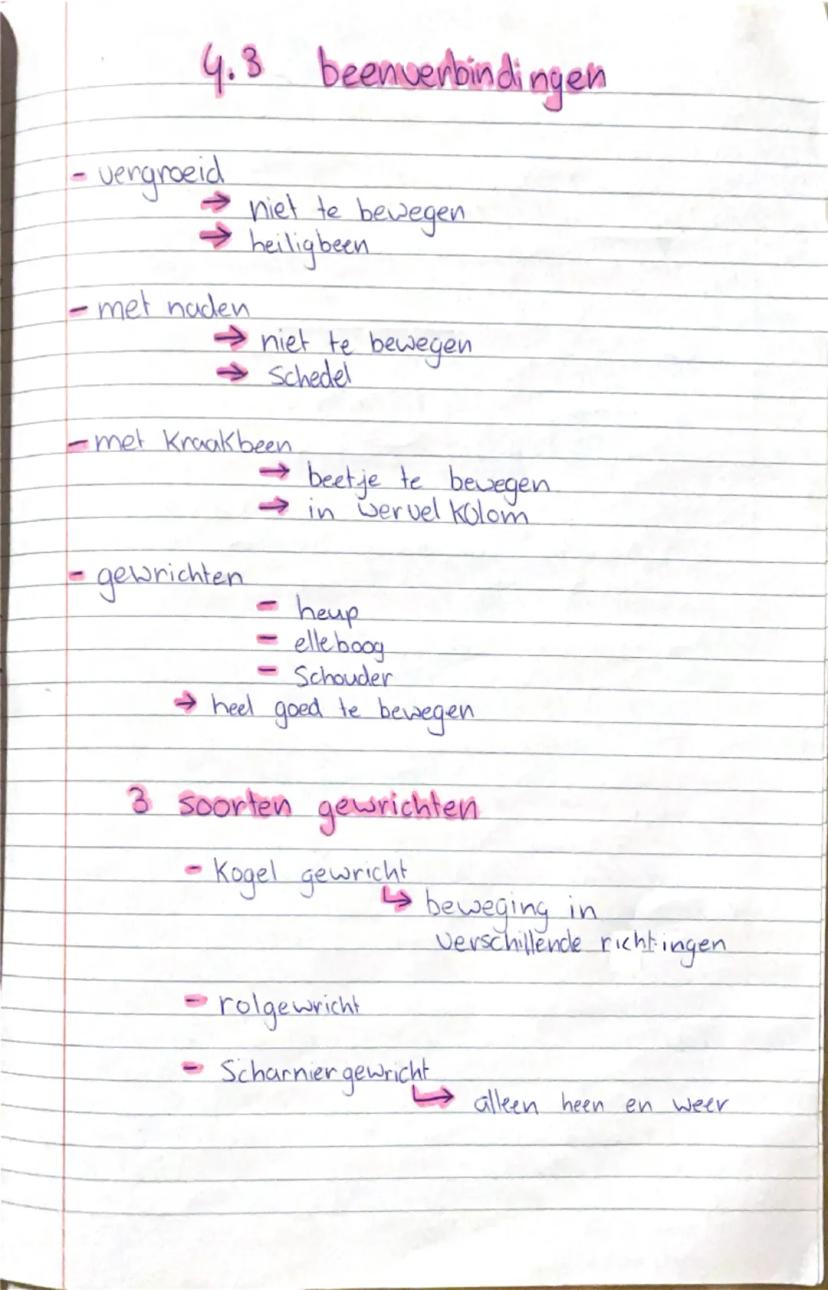 4.3 beenverbindingen
- vergroeid
→ niet te bewegen
→ heiligbeen
- met naden
→ niet te bewegen
→ Schedel
- met kraakbeen
→ beetje te bewegen
→ in wervel kolom
- gewrichten
- heup
- elleboog
- Schouder
→ heel goed te bewegen
3 soorten gewrichten
- Kogel gewricht
↳ beweging in
verschillende richtingen
- rolgewricht
- Scharniergewricht
↳ alleen heen en weer